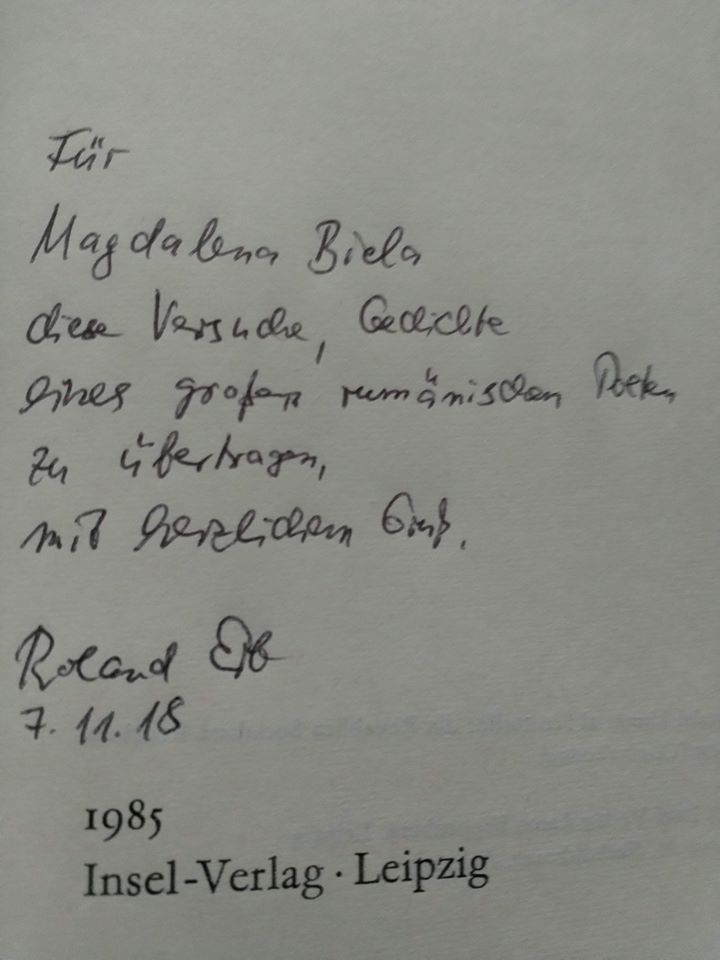 Für
Magdalena Biela
diese Versuche, Gedichte
eines großen rumänischen Poeten
zu übertragen,
mit herzlichem Gruß,
Roland Erb
7. 11. 18
1985
Insel-Verlag · Leipzig